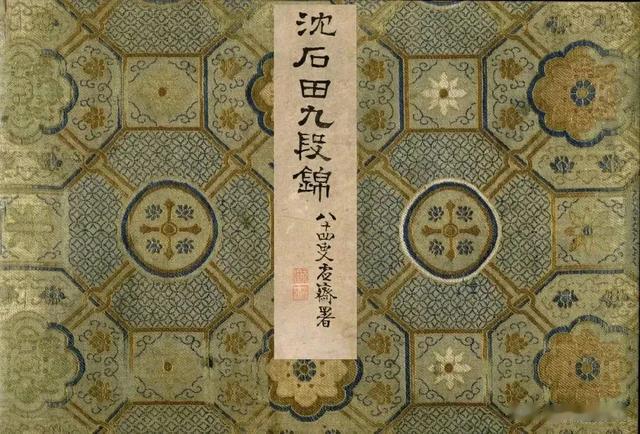 沈石田九段錦
八十四叟玄齋署